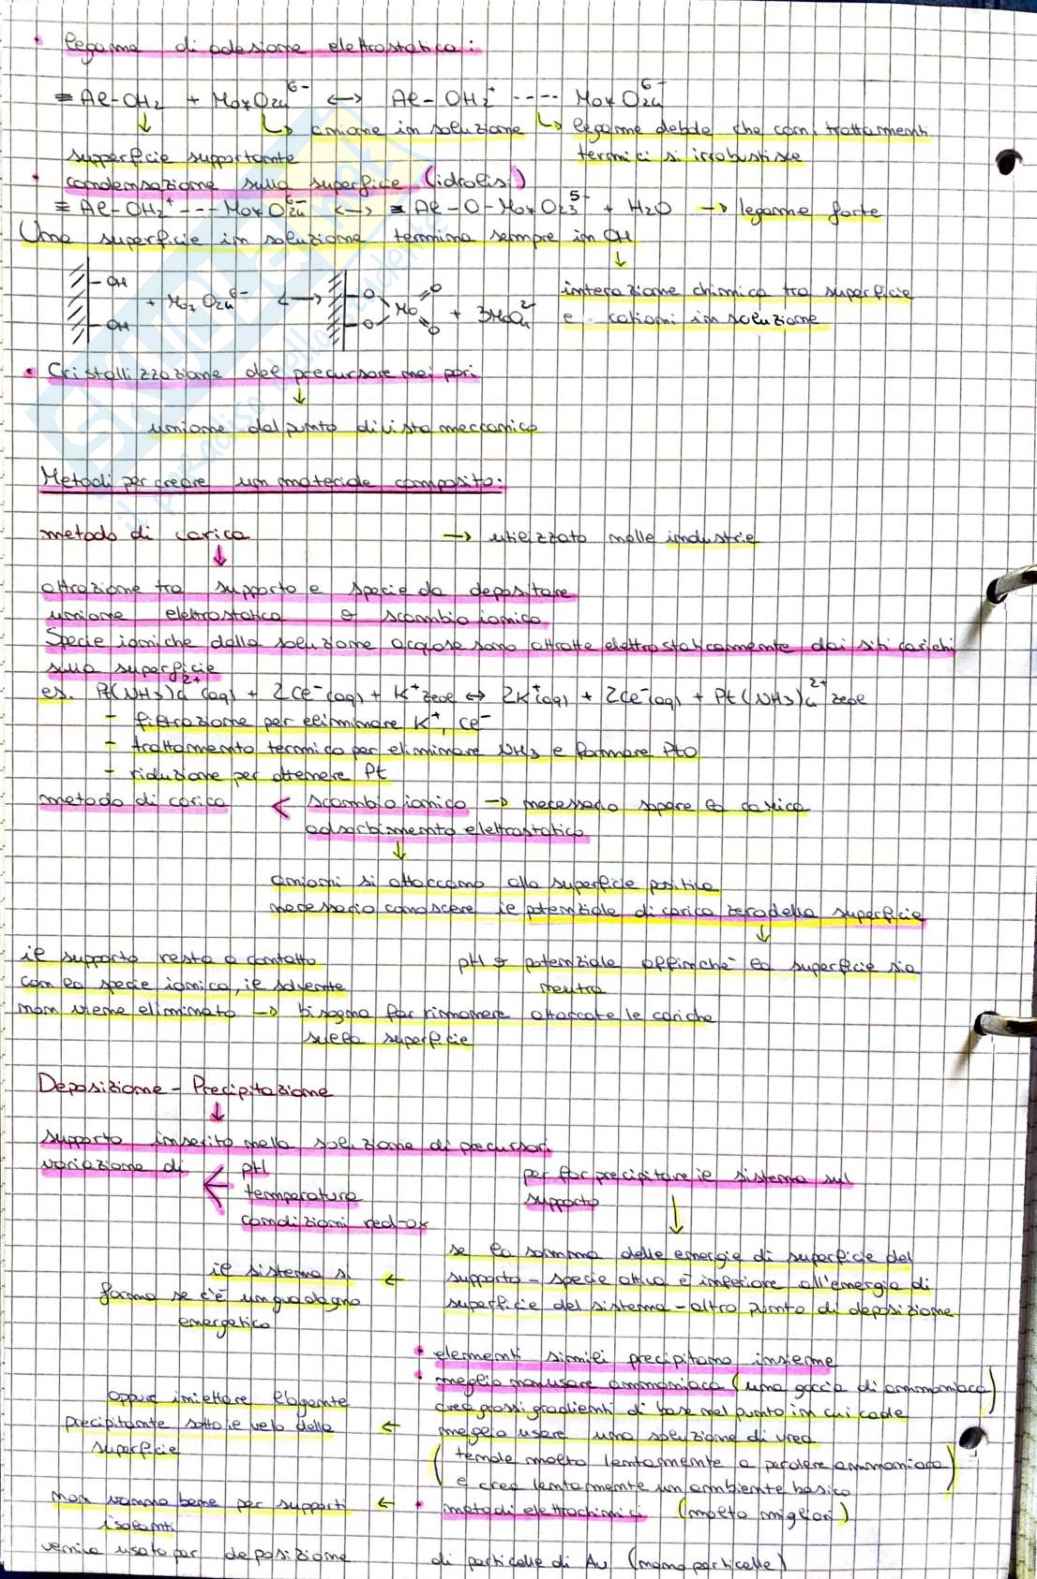 • legame di adesione elettrostatica:
≡Al-OH2 + Mo7O24^6- <-> Al-OH2^+ ---- Mo7O24^6-
↓ ↳ anione in soluzione ↳ legame debole che con i trattamenti
superficie supportante termici si irrobustisce
• condensazione sulla superficie (idrolisi)
≡Al-OH2^+ --- Mo7O24^6- <-> ≡Al-O-Mo7O23^5- + H2O -> legame forte
Una superficie in soluzione termina sempre in OH
↓
-OH + Mo7O24^6- <-> -O Mo O + 3MoO4^2- interazione chimica tra superficie
-OH -O O e cationi in soluzione
• Cristallizzazione del precursore nei pori
↓
unione dal punto di vista meccanico
Metodi per creare un materiale composito:
metodo di carica -> utilizzato nelle industrie
↓
attrazione tra supporto e specie da depositare
unione elettrostatica o scambio ionico
Specie ioniche dalla soluzione acquosa sono attratte elettrostaticamente dai siti carichi
sulla superficie
es. Pt(NH3)4^2+ (aq) + 2Cl^- (aq) + K^+ zeol <-> 2K^+(aq) + 2Cl^-(aq) + Pt(NH3)4^2+ zeol
- filtrazione per eliminare K^+, Cl^-
- trattamento termico per eliminare NH3 e formare PtO
- riduzione per ottenere Pt
metodo di carica < scambio ionico -> necessario sapere la carica
adsorbimento elettrostatico
↓
anioni si attaccano alla superficie positiva
necessario conoscere il potenziale di carica zero della superficie
↓
il supporto resta a contatto pH o potenziale affinchè la superficie sia
con la specie ionica, il solvente neutra
non viene eliminato -> bisogna far rimanere attaccate le cariche
sulla superficie
Deposizione - Precipitazione
↓
supporto inserito nella soluzione di precursori
variazione di < pH per far precipitare il sistema sul
temperatura supporto
condizioni red-ox ↓
se la somma delle energie di superficie del
il sistema si <- supporto - specie attiva è inferiore all'energia di
forma se c'è un guadagno superficie del sistema - altro punto di deposizione
energetico
• elementi simili precipitano insieme
• meglio non usare ammoniaca (una goccia di ammoniaca)
oppure iniettare l'agente crea grossi gradienti di base nel punto in cui cade
precipitante sotto il velo della <- meglio usare una soluzione di urea
superficie (tende molto lentamente a perdere ammoniaca
e crea lentamente un ambiente basico)
non vanno bene per supporti <- • metodi elettrochimici (molto migliori)
isolanti
usato per deposizione di particelle di Au (nano particelle)